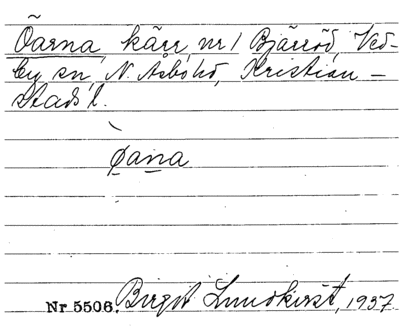 Öarna, kärr, nr 1 Bjärröd, Ved-
by sn, N. Åsbo hd, Kristian-
stads l.
øana
Nr 5506. Birgit Lundkvist, 1937